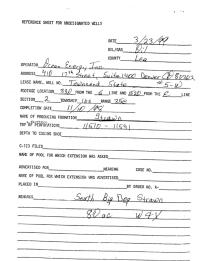 REFERENCE SHEET FOR UNDESIGNATED WELLS
DATE 3/23/99
COUNTY Lea
OPERATOR Ocean Energy, Inc.
ADDRESS 410 17th Street, Suite 1400 Denver CO 80202
LEASE NAME, WELL NO. Townsend State #5-W
FOOTAGE LOCATION FROM THE LINE AND FROM THE E LINE
SECTION 2 TOWNSHIP 16S RANGE 35E
COMPLETION DATE 11/10/98
NAME OF PRODUCING FORMATION Strawn
TOP OF PERFORATIONS 11510 - 11541
DEPTH TO CASING SHOE
C-123 FILED
NAME OF POOL FOR WHICH EXTENSION WAS ASKED
ADVERTISED FOR HEARING CODE NO.
NAME OF POOL FOR WHICH EXTENSION WAS ADVERTISED
PLACED IN BY ORDER NO. R-
REMARKS South Big Dog Strawn
80 ac